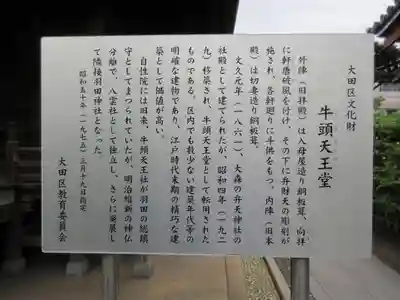 大田区文化財
牛頭天王堂
外陣（旧拝殿）は入母屋造り銅板葺、向拝
に軒唐破風を付け、その下に弁財天の彫刻が
施され、各軒廻りに斗拱をもつ。内陣（旧本
殿）は切妻造り銅板葺。
文久元年（一八六一）、大森の弁天神社の
社殿として建てられたが、昭和四年（一九二
九）移築され、牛頭天王堂として転用された
ものである。区内でも数少ない建築年代等の
明確な建物であり、江戸時代末期の精巧な建
築として価値が高い。
自性院には旧来、牛頭天王社が羽田の総鎮
守としてまつられていたが、明治維新の神仏
分離で、八雲社として独立し、さらに発展し
て隣接羽田神社となった。
昭和五十年（一九七五）三月十九日指定
大田区教育委員会